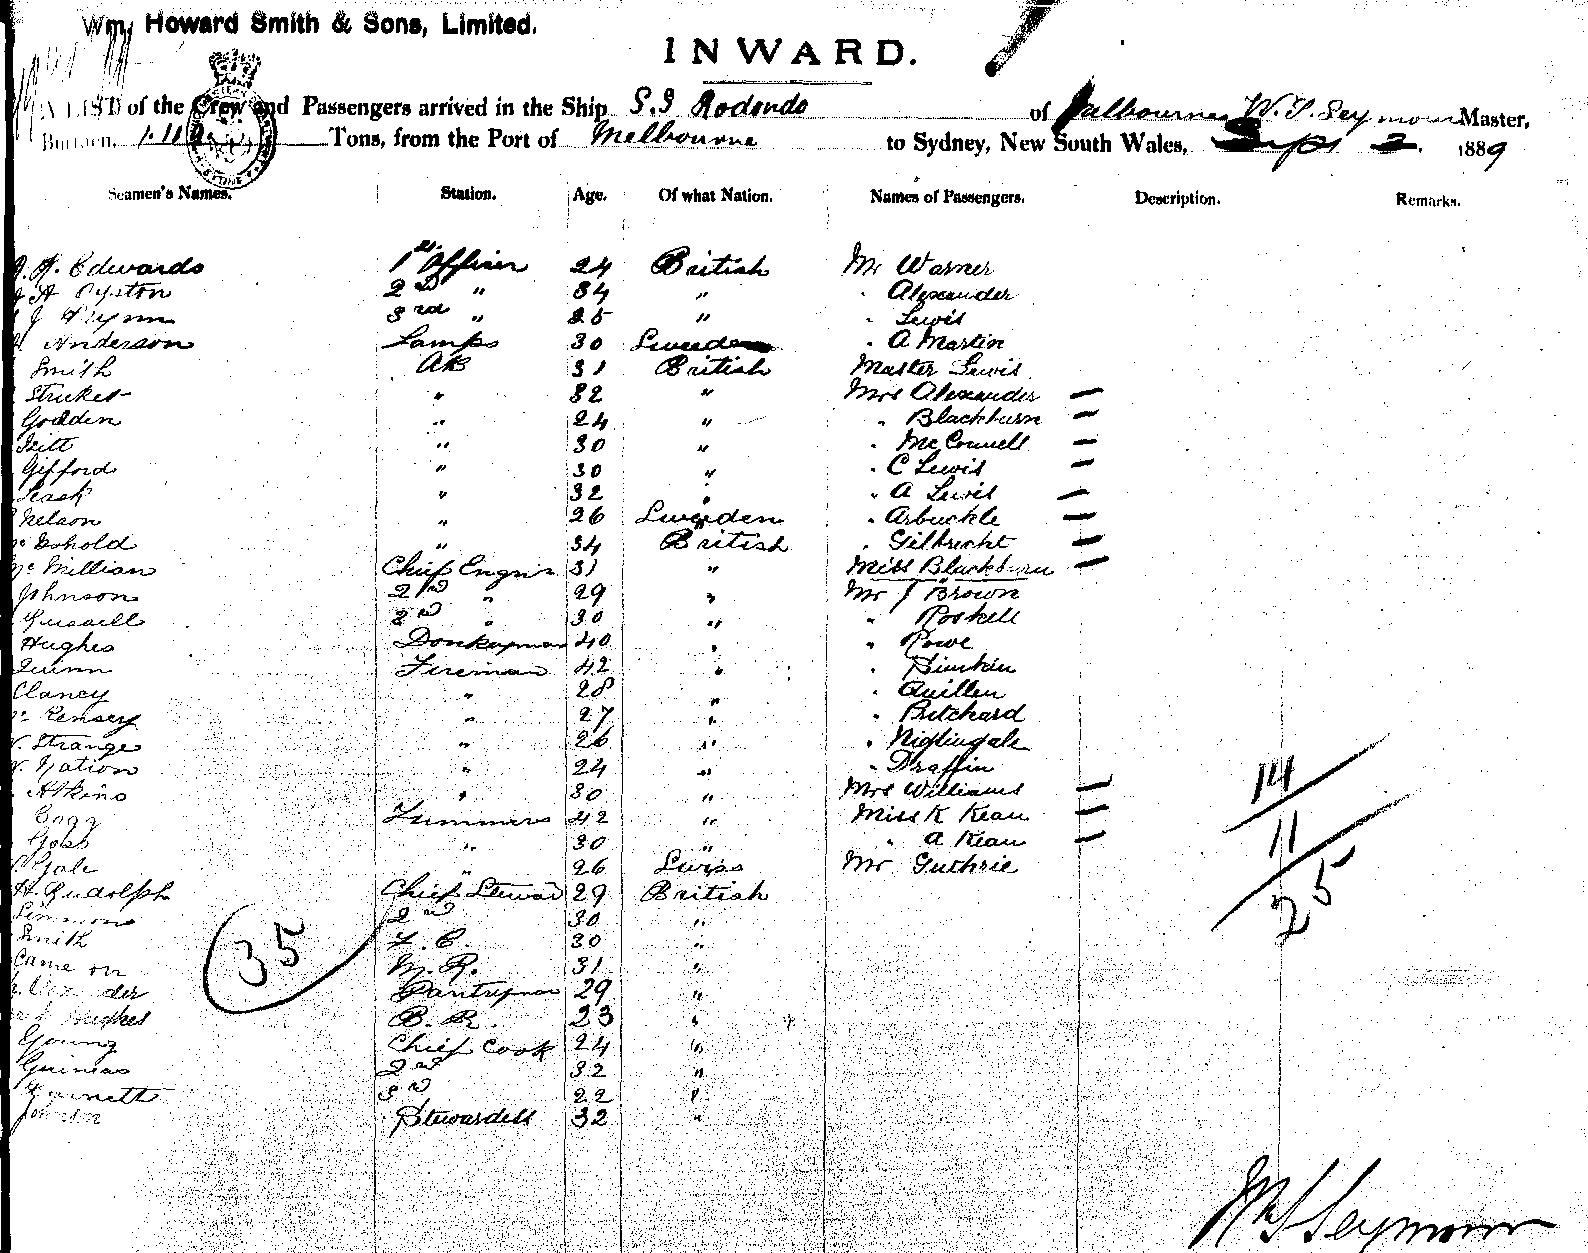 Wm. Howard Smith & Sons, Limited.
INWARD.
A LIST of the Crew and Passengers arrived in the Ship S.S Rodondo of Melbourne W. S. Seymour Master,
Burden, Tons, from the Port of Melbourne to Sydney, New South Wales, Sept 2. 1889
Seamen's Names. Station. Age. Of what Nation. Names of Passengers. Description. Remarks.
Edwards 1st Officer 24 British Mr Warner
2nd " 34 " " Alexander
J Flynn 3rd " 25 " " Lewis
Anderson Lamps 30 Sweeden " A Martin
Smith AB 31 British Master Lewis
" 32 " Mrs Alexander —
Godden " 24 " " Blackburn —
" 30 " " McConnell —
Gifford " 30 " " C Lewis —
Leask " 32 " " A Lewis —
Nelson " 26 Sweeden " Arbuckle —
" 34 British " Gilbrecht —
Mc Millian Chief Engin 31 " Miss Blackburn —
Johnson 2nd " 29 " Mr J Brown
2nd " 30 " " Poskell
Hughes Donkeyman 40 " " Rowe
Quinn Fireman 42 "
Clancy " 28 " " Quillen
" 27 " " Pritchard
Strange " 26 " " Nightingale
Nation " 24 " " Draffin
Atkins " 30 " Mrs Williams —
Trimmers 42 " Miss K Kean —
Goss " 30 " " A Kean —
Gale " 26 Swiss Mr Guthrie
H Rudolph Chief Steward 29 British
2nd 30 "
Smith F. C. 30 "
Cameron M. R. 31 "
Pantryman 29 "
Hughes B. R. 23 "
Young Chief Cook 24 "
2nd 32 "
3rd 22 "
Stewardess 32 "
35
14
11
25
W S Seymour